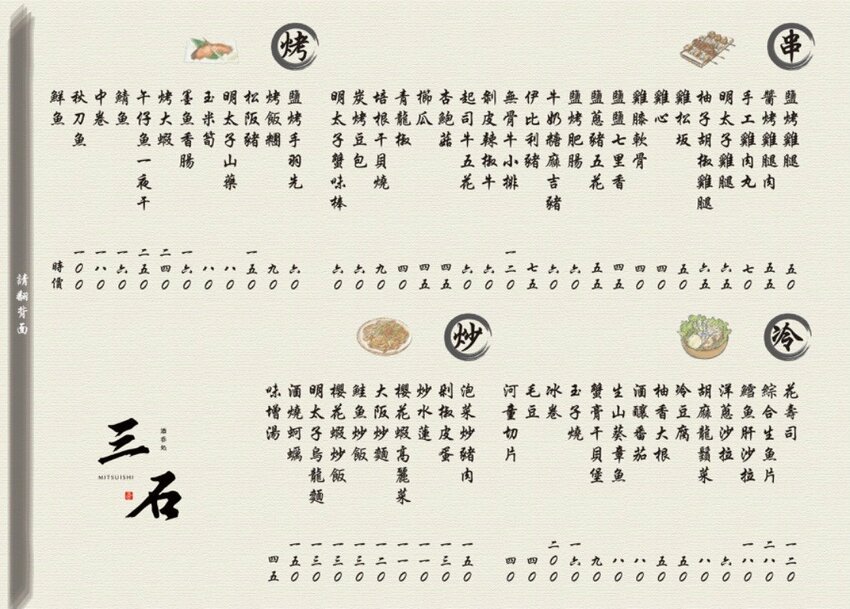 串
鹽烤雞腿 五0
醬烤雞腿肉 五五
手工雞肉丸 七0
明太子雞腿 六五
柚子胡椒雞腿 六五
雞松坂 五0
雞心 四0
雞膝軟骨 四0
鹽鹽七里香 四五
鹽蔥豬五花 五五
鹽烤肥腸 六0
牛奶糖麻吉豬 六0
伊比利豬 七五
無骨牛小排 一二0
剝皮辣椒牛 六0
起司牛五花 六0
杏鮑菇 四五
櫛瓜 四五
青龍椒 四0
培根干貝燒 九0
炭烤豆包 六0
明太子蟹味棒 六0
烤
鹽烤手羽先 六0
烤飯糰 九0
松阪豬 一五0
明太子山藥 八0
玉米筍 八0
墨魚香腸 一六0
烤大蝦 二四0
午仔魚一夜干 二五0
鯖魚 一六0
中卷 一八0
秋刀魚 一00
鮮魚 時價
冷
花壽司 一二0
綜合生魚片 二八0
鱈魚肝沙拉 一八0
洋蔥沙拉 六0
胡麻龍鬚菜 八0
冷豆腐 五0
柚香大根 五0
酒釀番茄 八0
生山葵章魚 八0
蟹膏干貝堡 九0
玉子燒 一六0
冰卷 二00
毛豆 四0
河童切片 四0
炒
泡菜炒豬肉 一五0
剁椒皮蛋 一三0
炒水蓮 一一0
櫻花蝦高麗菜 一一0
大阪炒麵 一二0
鮭魚炒飯 一三0
櫻花蝦炒飯 一三0
明太子烏龍麵 一三0
酒燒蚵蠣 一五0
味增湯 四五
三石
MITSUISHI
請翻背面